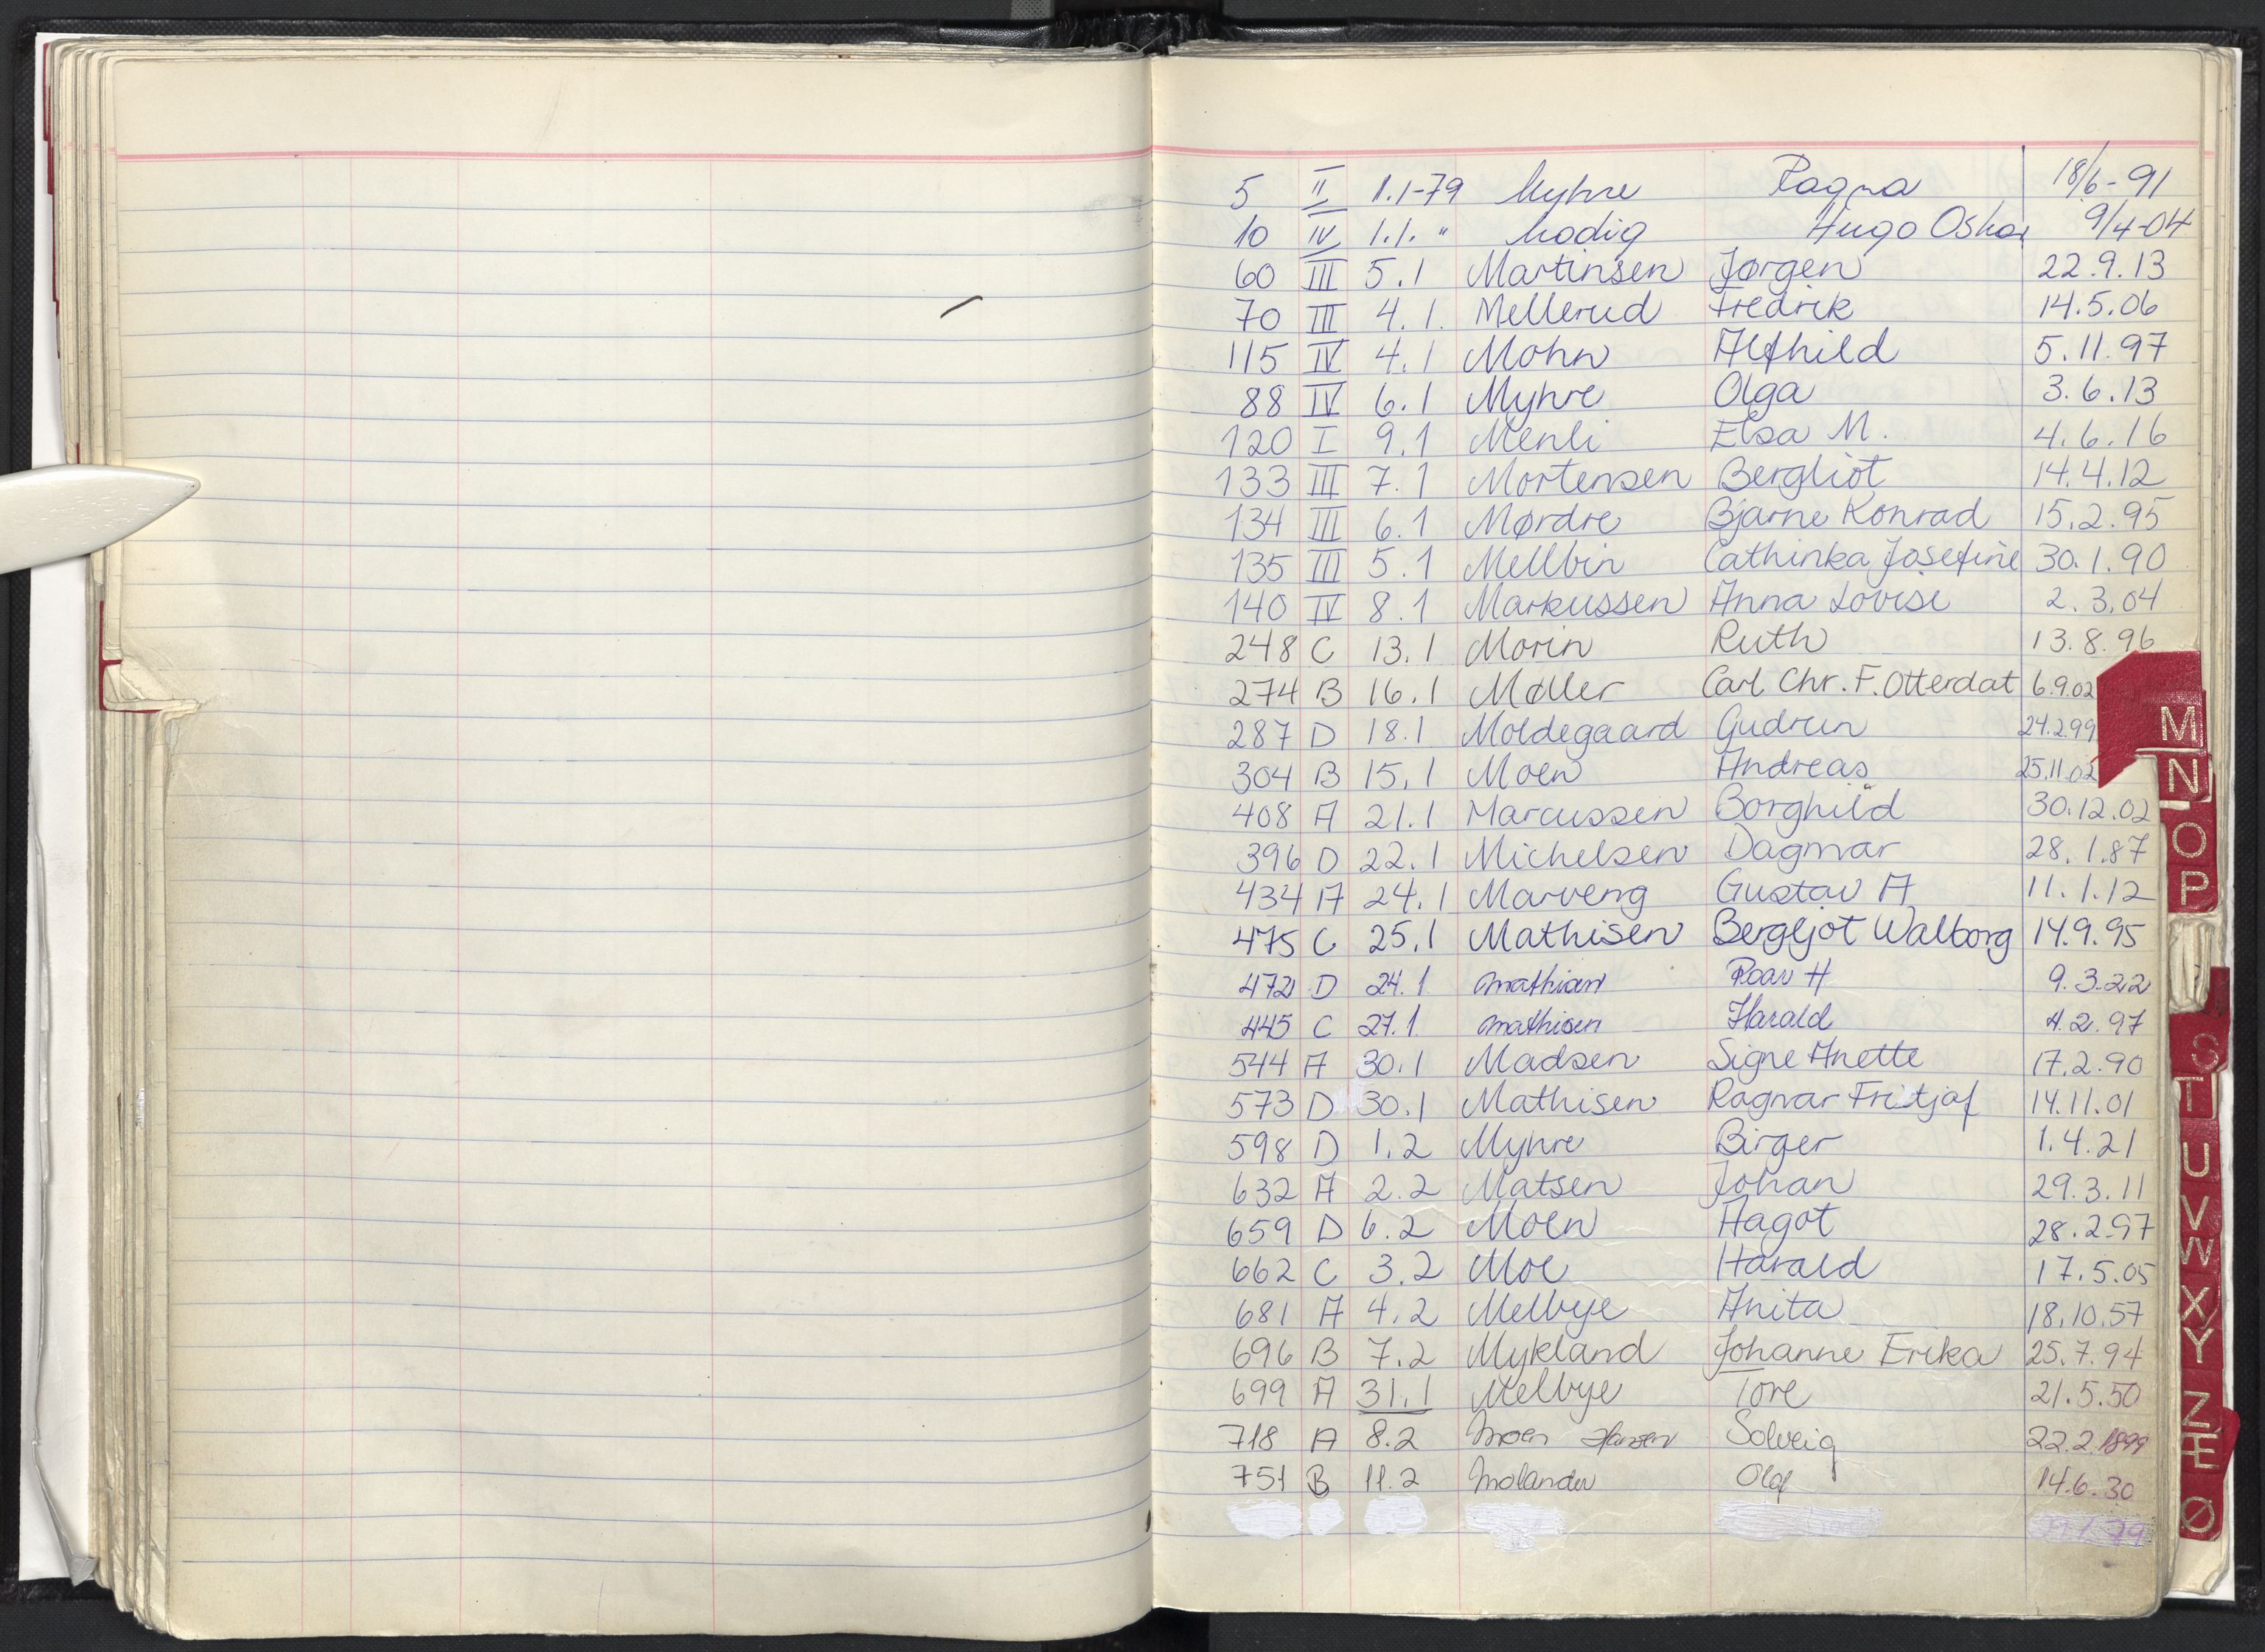 5 II 1.1-79 Myhre Ragna 18/6-91
10 IV 1.1. " Modig Hugo Oskar 9/4-04
60 III 5.1 Martinsen Jørgen 22.9.13
70 III 4.1. Mellerud Fredrik 14.5.06
115 IV 4.1 Mohn Alfhild 5.11.97
88 IV 6.1 Myhre Olga 3.6.13
120 I 9.1 Menli Elsa M. 4.6.16
133 III 7.1 Mortensen Bergliot 14.4.12
134 III 6.1 Mørdre Bjarne Konrad 15.2.95
135 III 5.1 Mellbin Cathinka Josefine 30.1.90
140 IV 8.1 Markussen Anna Lovise 2.3.04
248 C 13.1 Morin Ruth 13.8.96
274 B 16.1 Møller Carl Chr. F. Otterdat 6.9.02
287 D 18.1 Moldegaard Gudrun 24.2.99
304 B 15.1 Moen Andreas 25.11.02
408 A 21.1 Marcussen Borghild 30.12.02
396 D 22.1 Michelsen Dagmar 28.1.87
434 A 24.1 Marveng Gustav A 11.1.12
475 C 25.1 Mathisen Bergljot Walborg 14.9.95
472 D 24.1 Mathisen Roar H 9.3.22
445 C 27.1 Mathisen Harald 4.2.97
544 A 30.1 Madsen Signe Anette 17.2.90
573 D 30.1 Mathisen Ragnar Fritjof 14.11.01
598 D 1.2 Myhre Birger 1.4.21
632 A 2.2 Matsen Johan 29.3.11
659 D 6.2 Moen Aagot 28.2.97
662 C 3.2 Moe Harald 17.5.05
681 A 4.2 Melbye Anita 18.10.57
696 B 7.2 Mykland Johanne Erika 25.7.94
699 A 31.1 Melbye Tore 21.5.50
718 A 8.2 Moen Hansen Solveig 22.2.1899
751 B 11.2 Molander Olaf 14.6.30
M
N
O
P
S
T
U
V
W
X
Y
Z
Æ
Ø